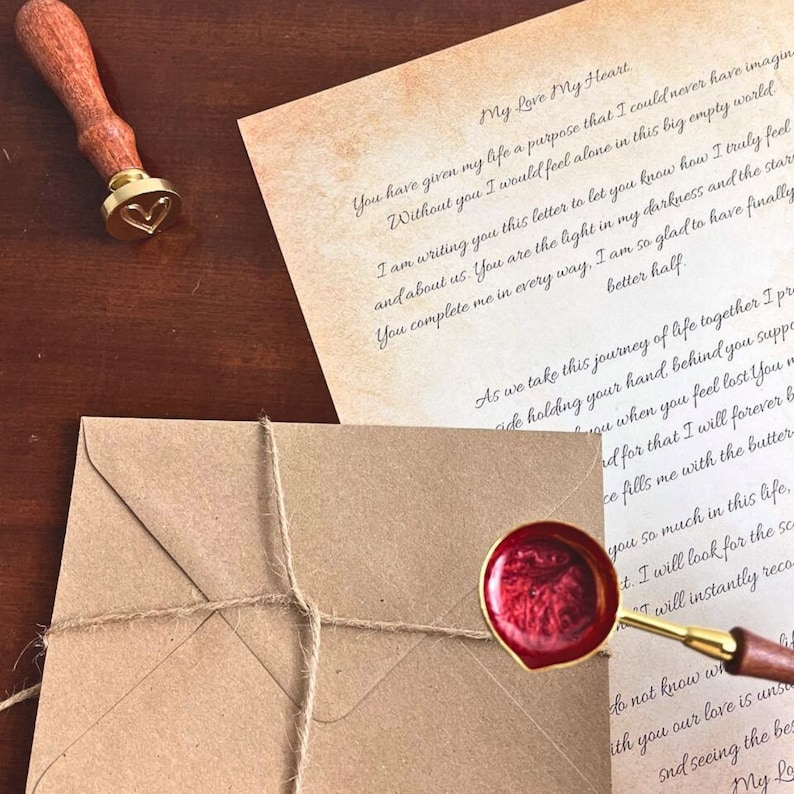 My Love My Heart.
You have given my life a purpose that I could never have imagin
Without you I would feel alone in this big empty world.
I am writing you this letter to let you know how I truly feel
and about us. You are the light in my darkness and the star
You complete me in every way, I am so glad to have finally
better half.
As we take this journey of life together I pr
side holding your hand, behind you suppo
you when you feel lost.You m
nd for that I will forever b
ce fills me with the butter
you so much in this life,
t. I will look for the sc
I will instantly reco
do not know
ith you our love is unst
snd seeing the bes
My Lo